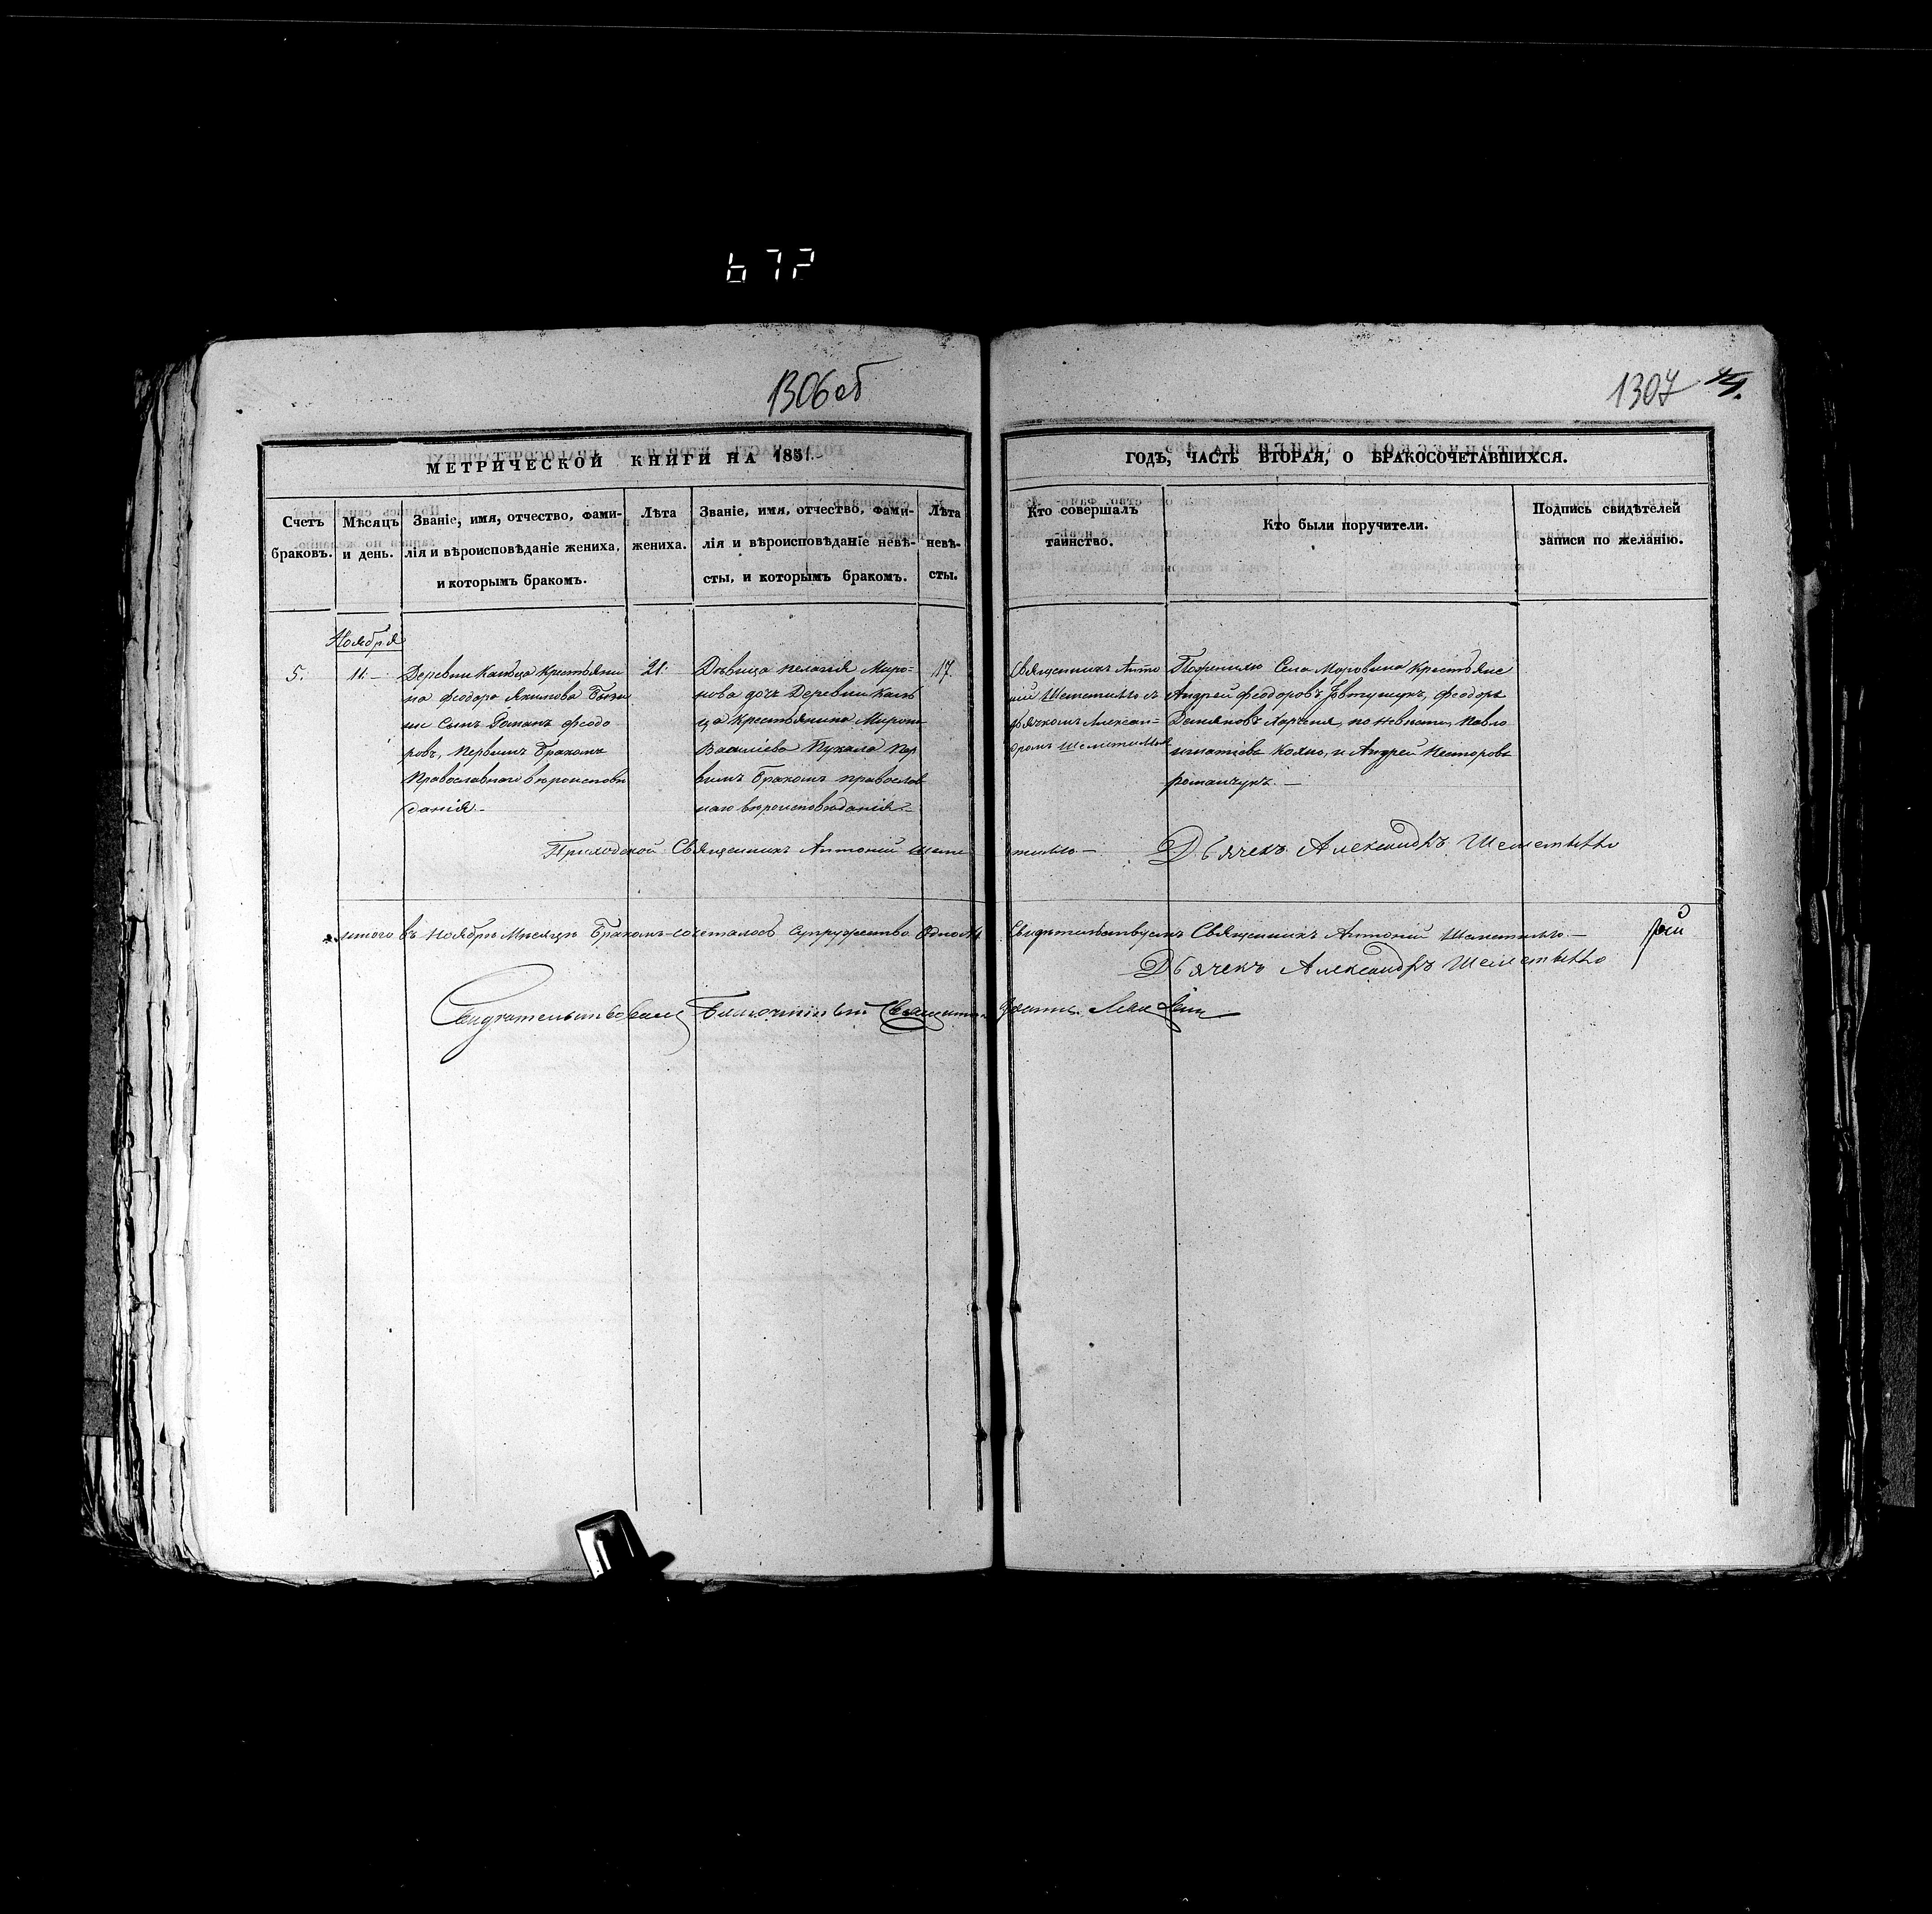 672
1306об
1307
МЕТРИЧЕСКОЙ КНИГИ НА 1851.
ГОДЪ, ЧАСТЬ ВТОРАЯ, О БРАКОСОЧЕТАВШИХСЯ.
Счетъ браковъ.
Мѣсяцъ и день.
Званіе, имя, отчество, фами-
лія и вѣроисповѣданіе жениха,
и которымъ бракомъ.
Лѣта
жениха.
Званіе, имя, отчество, фами-
лія и вѣроисповѣданіе невѣ-
сты, и которымъ бракомъ.
Лѣта
невѣ-
сты.
Кто совершалъ
таинство.
Кто были поручители.
Подпись свидѣтелей
записи по желанію.
Ноября
5.
11.
Деревни крестьяни
на Феодора Якимова
сынъ Романъ Феодо
ровъ, первымъ бракомъ
Православнаго вѣроисповѣ
данія
21.
Дѣвица Пелагія Миро-
нова дочь Деревни
ца крестьянина Мирона
Василіева Пукала пер
вымъ бракомъ православ
наго вѣроисповѣданія
17.
Священникъ Анто
ній Шеметилло съ
дьячкомъ Алексан-
дромъ Шеметилло
По женихѣ Села крестьяне
Андрей Феодоровъ Феодоръ
Демяновъ по невѣстѣ, Павло
Игнатіевъ и Андрей Несторовъ
Романчукъ.
Приходской Священникъ Антоній Шеметилло
Дьячекъ Александръ Шеметилло
итого въ Ноябрѣ Мѣсяцѣ Бракомъ сочеталось супружество одно
Свидѣтельствуемъ Священникъ Антоній Шеметилло
Дьячекъ Александръ Шеметилло
Свидѣтельствовалъ Благочинный Священникъ Іоаннъ